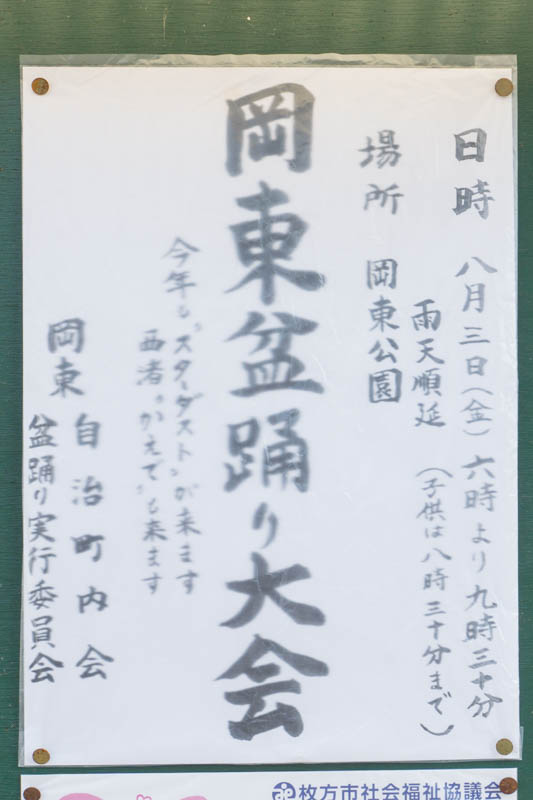 日時 八月三日(金)六時より九時三十分
雨天順延 (子供は八時三十分まで)
場所 岡東公園
岡東盆踊り大会
今年も〝スターダスト〟が来ます
〝かえで〟も来ます
岡東自治町内会
盆踊り実行委員会
枚方市社会福祉協議会